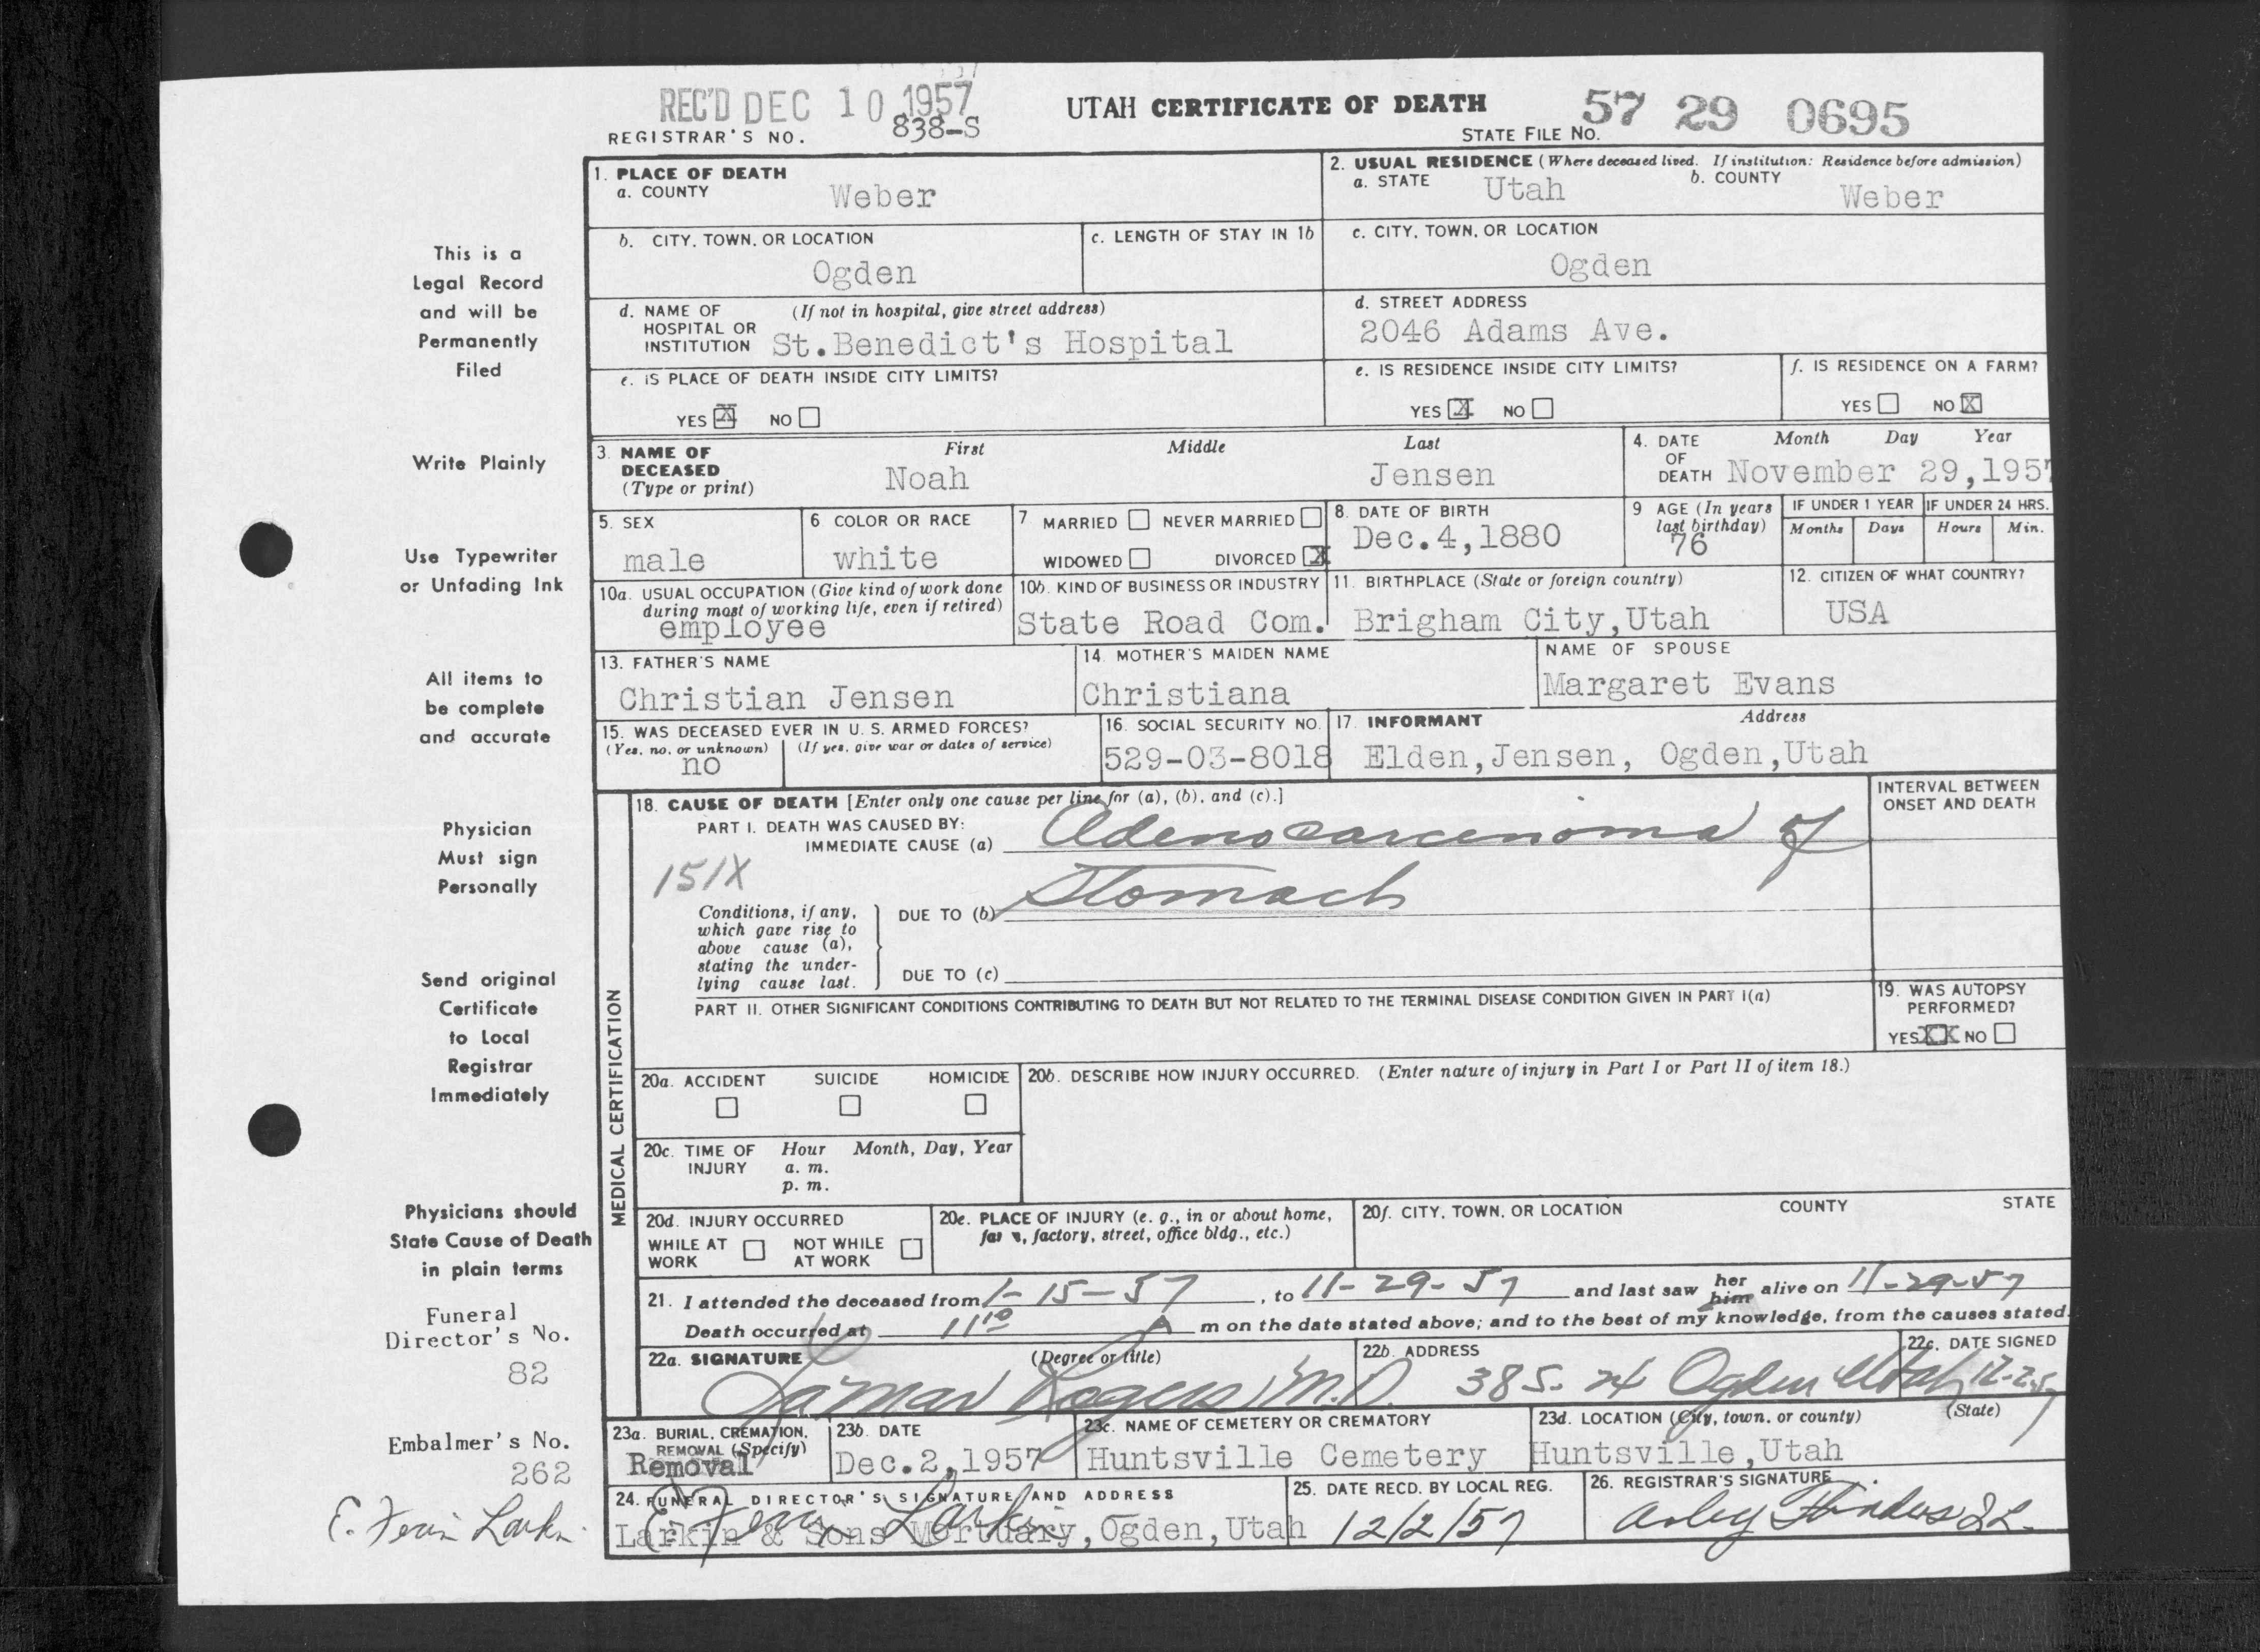 REC'D DEC 10 1957
REGISTRAR'S NO. 838-S
UTAH CERTIFICATE OF DEATH
STATE FILE NO. 57 29 0695
1. PLACE OF DEATH
a. COUNTY Weber
2. USUAL RESIDENCE (Where deceased lived. If institution: Residence before admission)
a. STATE Utah b. COUNTY Weber
b. CITY, TOWN, OR LOCATION Ogden
c. LENGTH OF STAY IN 1b
c. CITY, TOWN, OR LOCATION Ogden
d. NAME OF HOSPITAL OR INSTITUTION (If not in hospital, give street address) St.Benedict's Hospital
d. STREET ADDRESS 2046 Adams Ave.
e. IS PLACE OF DEATH INSIDE CITY LIMITS?
YES X NO
e. IS RESIDENCE INSIDE CITY LIMITS?
YES X NO
f. IS RESIDENCE ON A FARM?
YES NO X
3. NAME OF DECEASED (Type or print)
First Middle Last
Noah Jensen
4. DATE OF DEATH Month Day Year
November 29,195
5. SEX male
6 COLOR OR RACE white
7 MARRIED NEVER MARRIED
WIDOWED DIVORCED X
8. DATE OF BIRTH Dec.4,1880
9 AGE (In years last birthday) 76
IF UNDER 1 YEAR Months Days
IF UNDER 24 HRS. Hours Min.
10a. USUAL OCCUPATION (Give kind of work done during most of working life, even if retired) employee
10b. KIND OF BUSINESS OR INDUSTRY State Road Com.
11. BIRTHPLACE (State or foreign country) Brigham City,Utah
12. CITIZEN OF WHAT COUNTRY? USA
13. FATHER'S NAME Christian Jensen
14. MOTHER'S MAIDEN NAME Christiana
NAME OF SPOUSE Margaret Evans
15. WAS DECEASED EVER IN U. S. ARMED FORCES?
(Yes, no, or unknown) no (If yes, give war or dates of service)
16. SOCIAL SECURITY NO. 529-03-8018
17. INFORMANT Address
Elden,Jensen, Ogden,Utah
MEDICAL CERTIFICATION
18. CAUSE OF DEATH [Enter only one cause per line for (a), (b), and (c).]
INTERVAL BETWEEN ONSET AND DEATH
PART I. DEATH WAS CAUSED BY:
IMMEDIATE CAUSE (a) Adenocarcenoma of
151X
Stomach
Conditions, if any, which gave rise to above cause (a), stating the under-lying cause last.
DUE TO (b)
DUE TO (c)
PART II. OTHER SIGNIFICANT CONDITIONS CONTRIBUTING TO DEATH BUT NOT RELATED TO THE TERMINAL DISEASE CONDITION GIVEN IN PART I(a)
19. WAS AUTOPSY PERFORMED?
YES XX NO
20a. ACCIDENT SUICIDE HOMICIDE
20b. DESCRIBE HOW INJURY OCCURRED. (Enter nature of injury in Part I or Part II of item 18.)
20c. TIME OF INJURY Hour Month, Day, Year
a. m.
p. m.
20d. INJURY OCCURRED
WHILE AT WORK NOT WHILE AT WORK
20e. PLACE OF INJURY (e. g., in or about home, factory, street, office bldg., etc.)
20f. CITY, TOWN, OR LOCATION COUNTY STATE
21. I attended the deceased from 1-15-57, to 11-29-57 and last saw her him alive on 11-29-57
Death occurred at 11 10 A m on the date stated above; and to the best of my knowledge, from the causes stated.
22a. SIGNATURE (Degree or title)
LaMar Rogers M.D.
22b. ADDRESS 385-24 Ogden Utah
22c. DATE SIGNED 12-2-57
23a. BURIAL, CREMATION, REMOVAL (Specify) Removal
23b. DATE Dec.2,1957
23c. NAME OF CEMETERY OR CREMATORY Huntsville Cemetery
23d. LOCATION (City, town, or county) (State)
Huntsville,Utah
24. FUNERAL DIRECTOR'S SIGNATURE AND ADDRESS
Larkin & Sons Mortuary,Ogden,Utah
25. DATE RECD. BY LOCAL REG. 12/2/57
26. REGISTRAR'S SIGNATURE
This is a
Legal Record
and will be
Permanently
Filed
Write Plainly
Use Typewriter
or Unfading Ink
All items to
be complete
and accurate
Physician
Must sign
Personally
Send original
Certificate
to Local
Registrar
Immediately
Physicians should
State Cause of Death
in plain terms
Funeral
Director's No.
82
Embalmer's No.
262